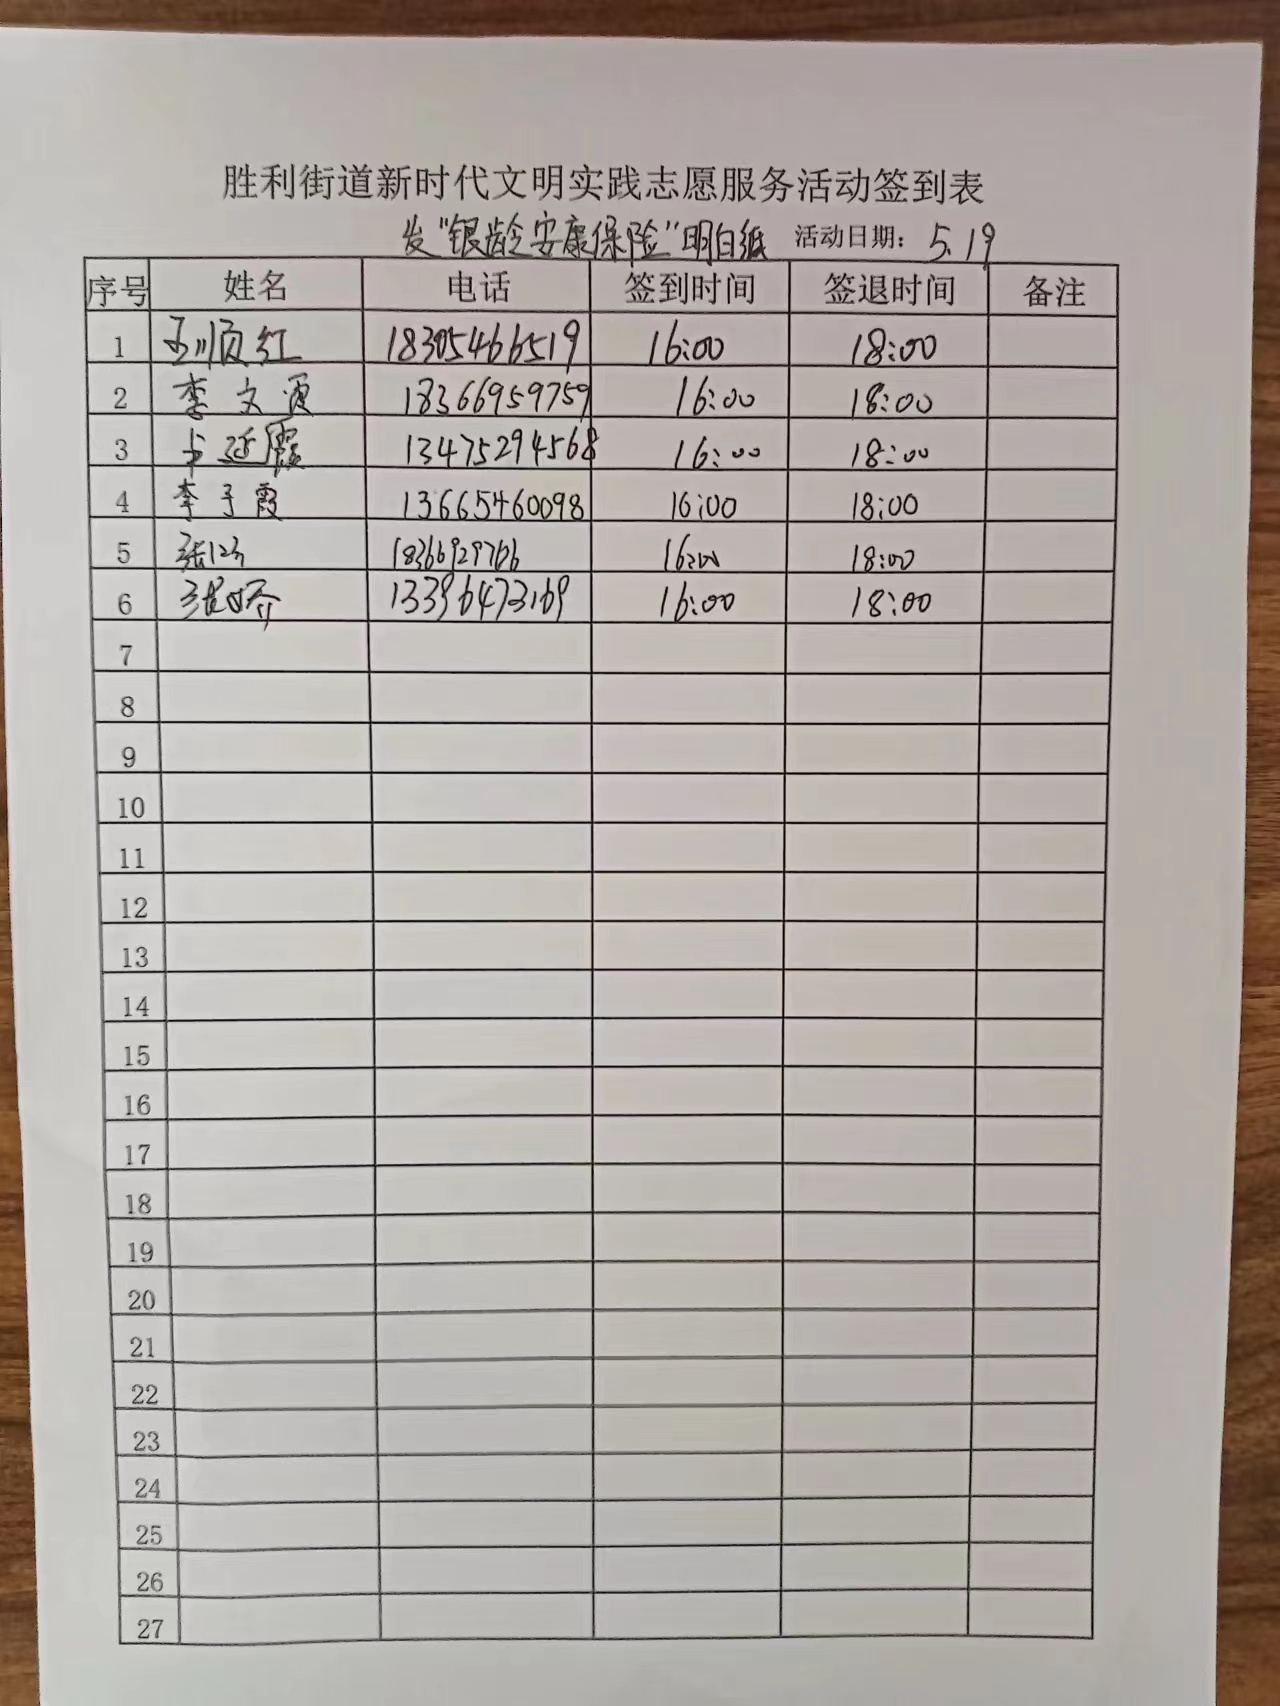 胜利街道新时代文明实践志愿服务活动签到表
发“银龄安康保险”明白纸 活动日期: 5.19
序号 姓名 电话 签到时间 签退时间 备注
1 王顺红 18305466519 16:00 18:00
2 李文 18366959759 16:00 18:00
3 延霞 13475294568 16:00 18:00
4 李于霞 13665460098 16:00 18:00
5 张 16:00 18:00
6 13396473169 16:00 18:00
7
8
9
10
11
12
13
14
15
16
17
18
19
20
21
22
23
24
25
26
27